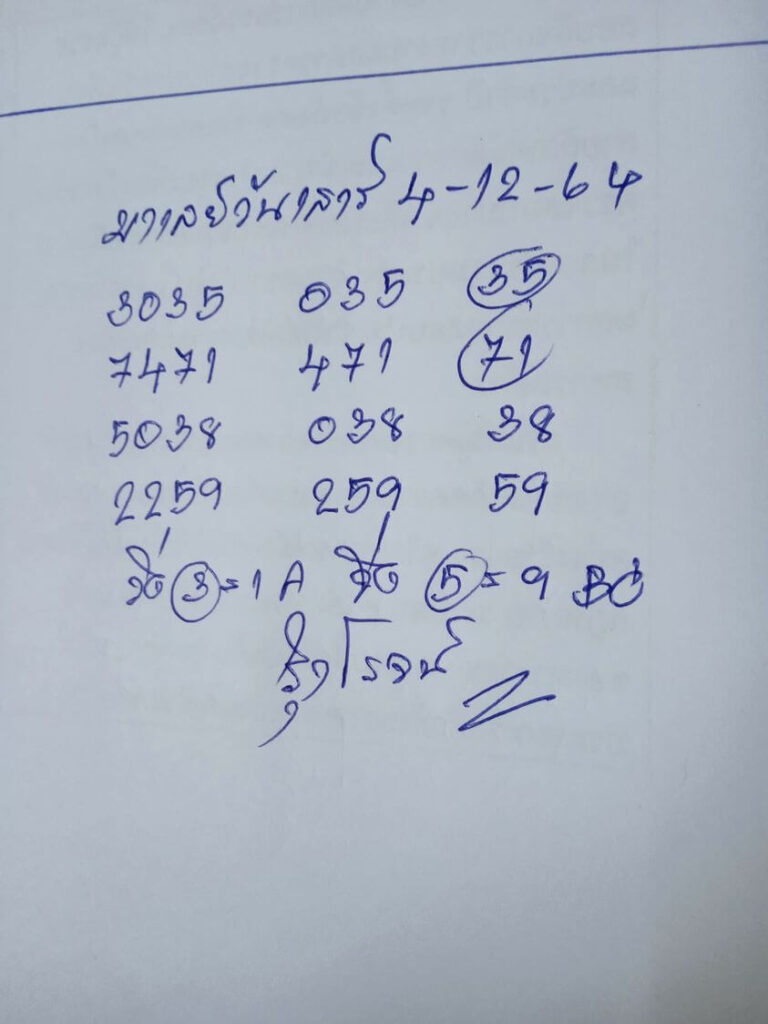 มาเลย์วันเสาร์ 4-12-64
3035 035 35
7471 471 71
5038 038 38
2259 259 59
วิ่ง 3 = 1 A วิ่ง 5 = 9 BC
โรจน์